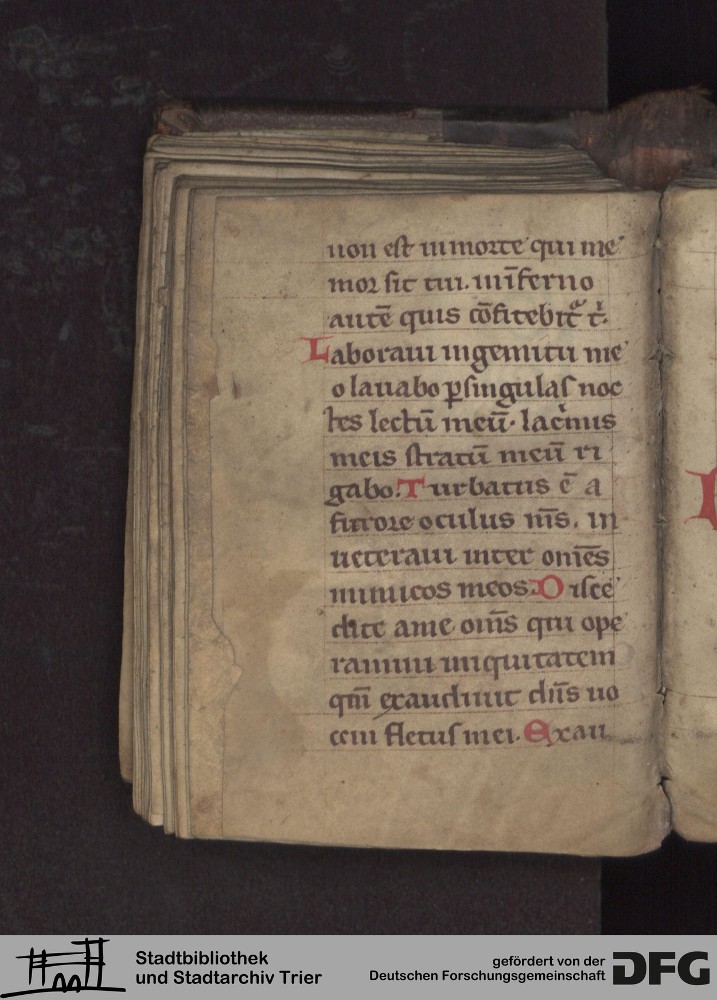 non est in morte qui me
mor sit tui. in īferno
autē quis cōfitebit᷑ t.
Laboraui ingemitu me
o lauabo ꝑsingulas noc
tes lectū meū. lacͥmis
meis stratū meū ri
gabo. Turbatus ē a
furore oculus m̄s. in
ueteraui inter omēs
inimicos meos. Disce
dite ame om̄s qui ope
ramini iniquitatem
qm̄ exaudiuit dn̄s uo
cem fletus mei. Exau
Stadtbibliothek
und Stadtarchiv Trier
gefördert von der
Deutschen Forschungsgemeinschaft
DFG